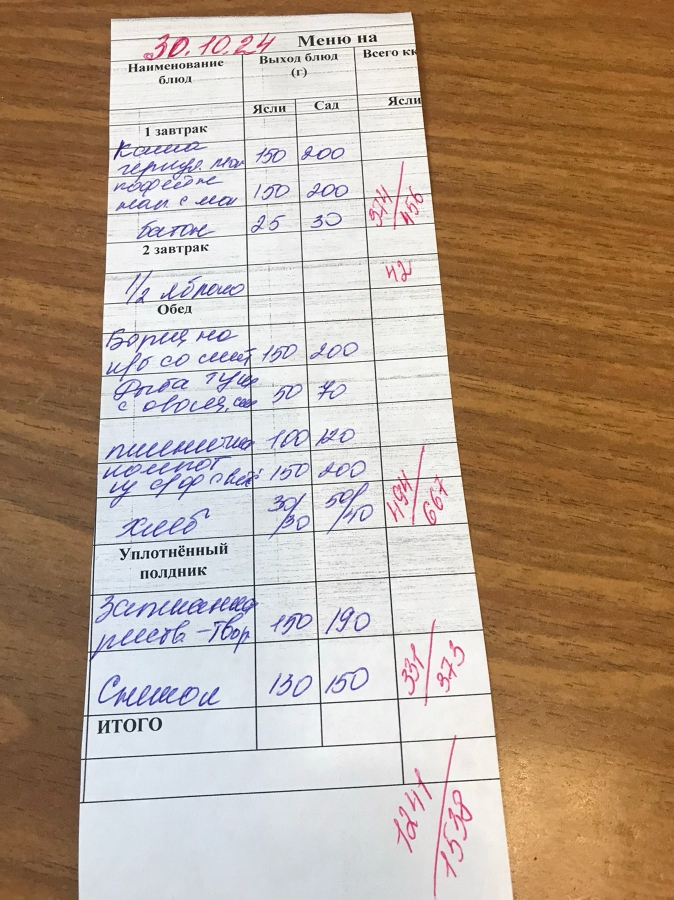 30.10.24 Меню на
Наименование блюд Выход блюд (г) Всего кк
Ясли Сад Ясли
1 завтрак
Каша
150 200
кофейн
нап с мол 150 200
батон 25 30 374/456
2 завтрак
1/2 яблоко 42
Обед
Борщ на
м/б со смет 150 200
Рыба туш
с овощ. 50 70
пшенична 100 120
компот
из с/ф с вит 150 200
хлеб 30/30 50/40 494/667
Уплотнённый
полдник
Запеканка
рисов-твор 150 190
Снежок 130 150 331/373
ИТОГО
1241/1538